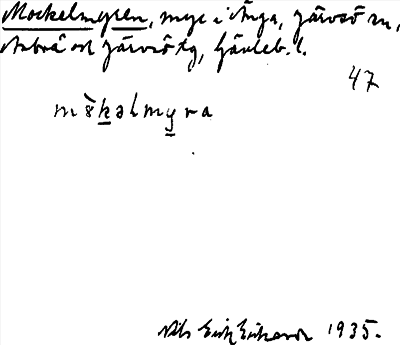 Mockelmyren, myr i Ånga, Järvsö sn,
Arbrå och Järvsö tg, Gävleb. l.
47
møkəlmyra
Nils Erik Eriksson 1935.